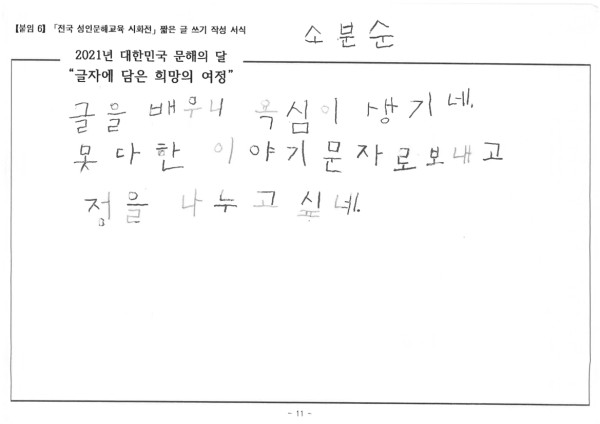 【붙임 6】「전국 성인문해교육 시화전」 짧은 글 쓰기 작성 서식
소분순
2021년 대한민국 문해의 달
“글자에 담은 희망의 여정”
글을 배우니 욕심이 생기네.
못다한 이야기 문자로 보내고
정을 나누고 싶네.
- 11 -